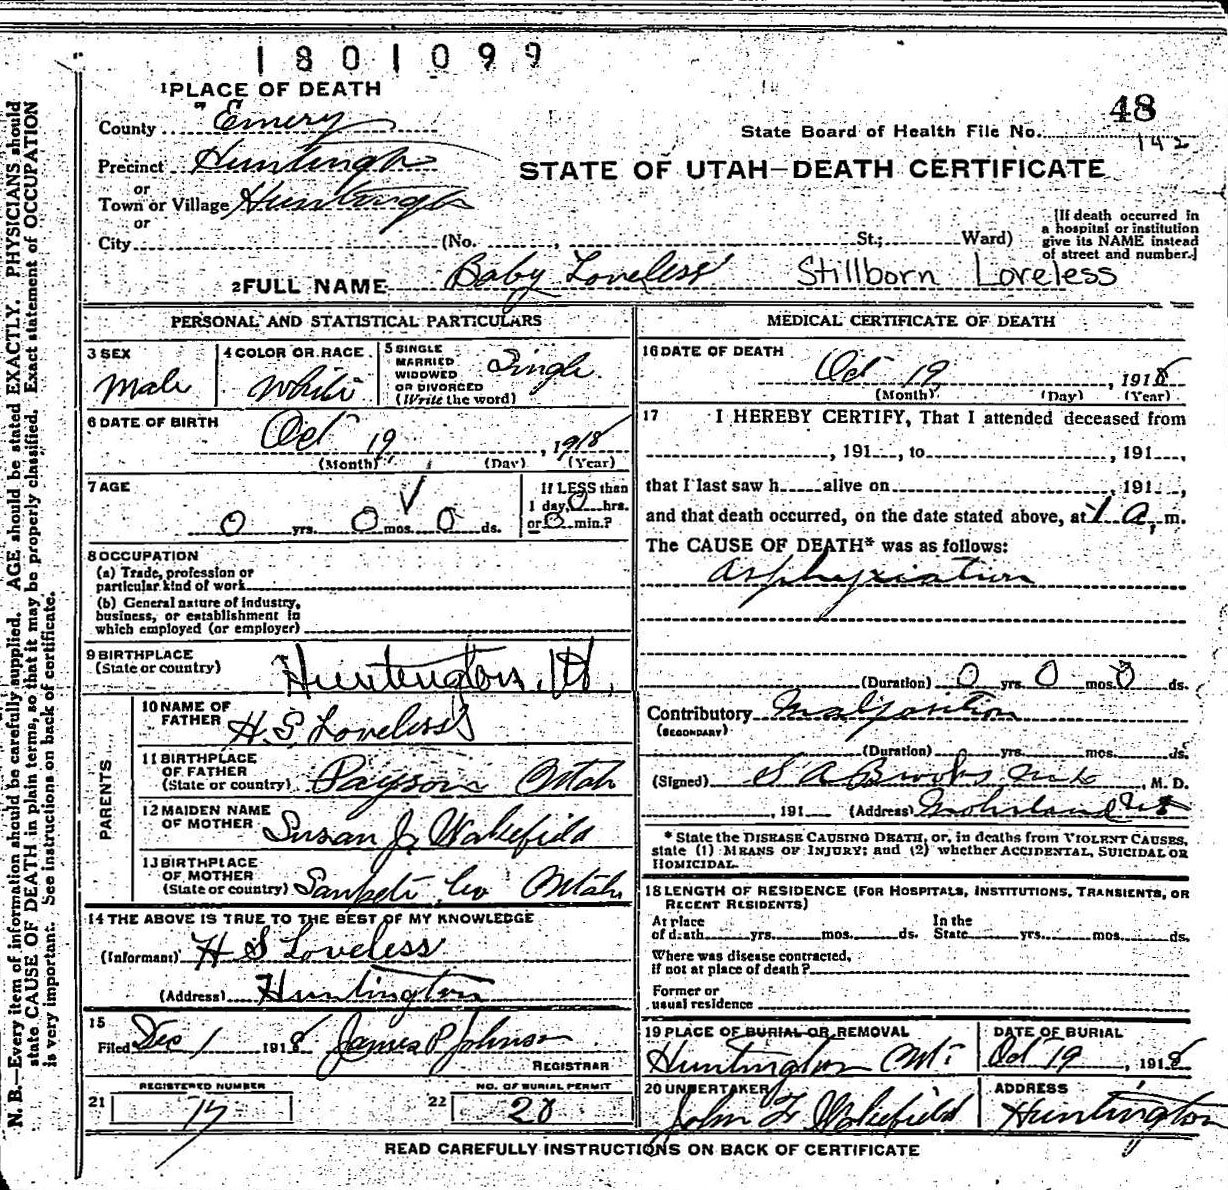 1801099
1 PLACE OF DEATH
48
County Emery
State Board of Health File No. 142
Precinct Huntington
STATE OF UTAH—DEATH CERTIFICATE
or
Town or Village Huntington
or
City (No. , St.; Ward)
[If death occurred in
a hospital or institution
give its NAME instead
of street and number.]
2 FULL NAME Baby Loveless Stillborn Loveless
PERSONAL AND STATISTICAL PARTICULARS
3 SEX
Male
4 COLOR OR RACE
White
5 SINGLE
MARRIED
WIDOWED
OR DIVORCED
(Write the word)
Single
6 DATE OF BIRTH
Oct 19, 1918
(Month) (Day) (Year)
7 AGE
0 yrs. 0 mos. 0 ds.
If LESS than
1 day, 0 hrs.
or 0 min.?
8 OCCUPATION
(a) Trade, profession or
particular kind of work
(b) General nature of industry,
business, or establishment in
which employed (or employer)
9 BIRTHPLACE
(State or country)
Huntington, Ut.
PARENTS
10 NAME OF
FATHER
H. S. Loveless
11 BIRTHPLACE
OF FATHER
(State or country)
Payson Utah
12 MAIDEN NAME
OF MOTHER
Susan J. Wakefield
13 BIRTHPLACE
OF MOTHER
(State or country)
Sanpete Co Utah
14 THE ABOVE IS TRUE TO THE BEST OF MY KNOWLEDGE
(Informant) H S Loveless
(Address) Huntington
15
Filed Dec 1 1918 James P Johnson
REGISTRAR
REGISTERED NUMBER
21 17
NO. OF BURIAL PERMIT
22 20
MEDICAL CERTIFICATE OF DEATH
16 DATE OF DEATH
Oct 19, 1918
(Month) (Day) (Year)
17 I HEREBY CERTIFY, That I attended deceased from
, 191 , to , 191 ,
that I last saw h alive on , 191 ,
and that death occurred, on the date stated above, at 1 a. m.
The CAUSE OF DEATH* was as follows:
Asphyxiation
(Duration) 0 yrs. 0 mos. 0 ds.
Contributory Malposition
(SECONDARY)
(Duration) yrs. mos. ds.
(Signed) S A Brooks M. D.
, 191 (Address) Mohrland Ut
* State the DISEASE CAUSING DEATH, or, in deaths from VIOLENT CAUSES,
state (1) MEANS OF INJURY; and (2) whether ACCIDENTAL, SUICIDAL OR
HOMICIDAL.
18 LENGTH OF RESIDENCE (FOR HOSPITALS, INSTITUTIONS, TRANSIENTS, OR
RECENT RESIDENTS)
At place
of death yrs. mos. ds.
In the
State yrs. mos. ds.
Where was disease contracted,
if not at place of death?
Former or
usual residence
19 PLACE OF BURIAL OR REMOVAL
Huntington Ut.
DATE OF BURIAL
Oct 19, 1918
20 UNDERTAKER
John F Wakefield
ADDRESS
Huntington
READ CAREFULLY INSTRUCTIONS ON BACK OF CERTIFICATE
N. B.—Every item of information should be carefully supplied. AGE should be stated EXACTLY. PHYSICIANS should
state CAUSE OF DEATH in plain terms, so that it may be properly classified. Exact statement of OCCUPATION
is very important. See instructions on back of certificate.